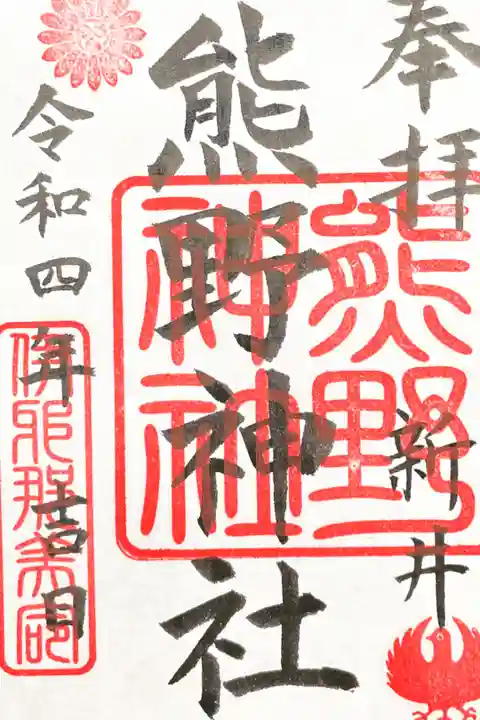 奉拝
新井
熊野神社
熊野
神社
令和四年吉日